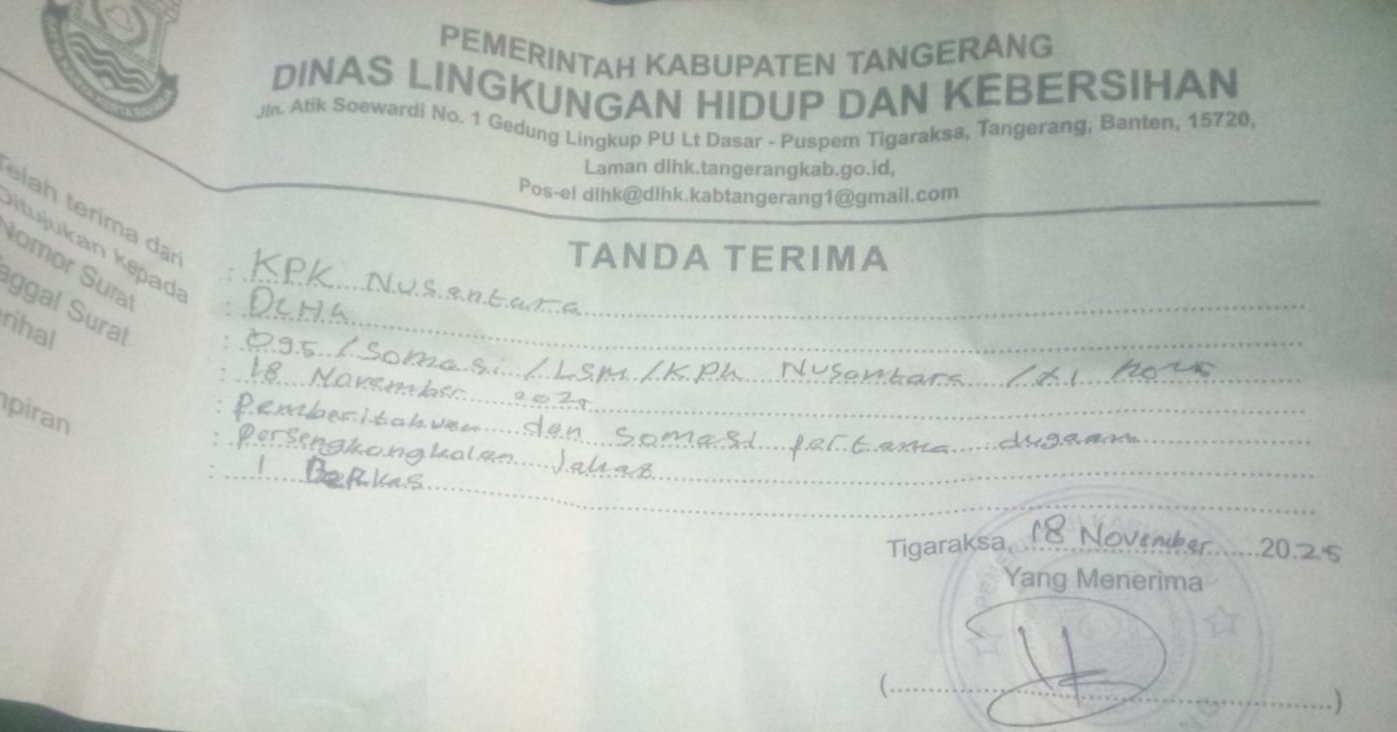 PEMERINTAH KABUPATEN TANGERANG
DINAS LINGKUNGAN HIDUP DAN KEBERSIHAN
Jln. Atik Soewardi No. 1 Gedung Lingkup PU Lt Dasar - Puspem Tigaraksa, Tangerang, Banten, 15720,
Laman dlhk.tangerangkab.go.id,
Pos-el dlhk@dlhk.kabtangerang1@gmail.com
TANDA TERIMA
Telah terima dari : KPK Nusantara
Ditujukan kepada : DLHK
Nomor Surat : 095 / Somasi / LSM / KPK Nusantara / XI
aggal Surat : 18 November 2025
rihal : Pemberitahuan dan somasi pertama dugaan
: persengkongkolan Jahat
mpiran : 1 Berkas
Tigaraksa, 18 November 2025
Yang Menerima
(....................)